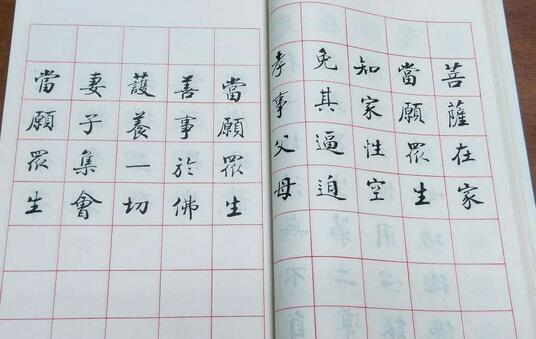 菩薩在家
當願眾生
知家性空
免其逼迫
孝事父母
當願眾生
善事於佛
護養一切
妻子集會
當願眾生